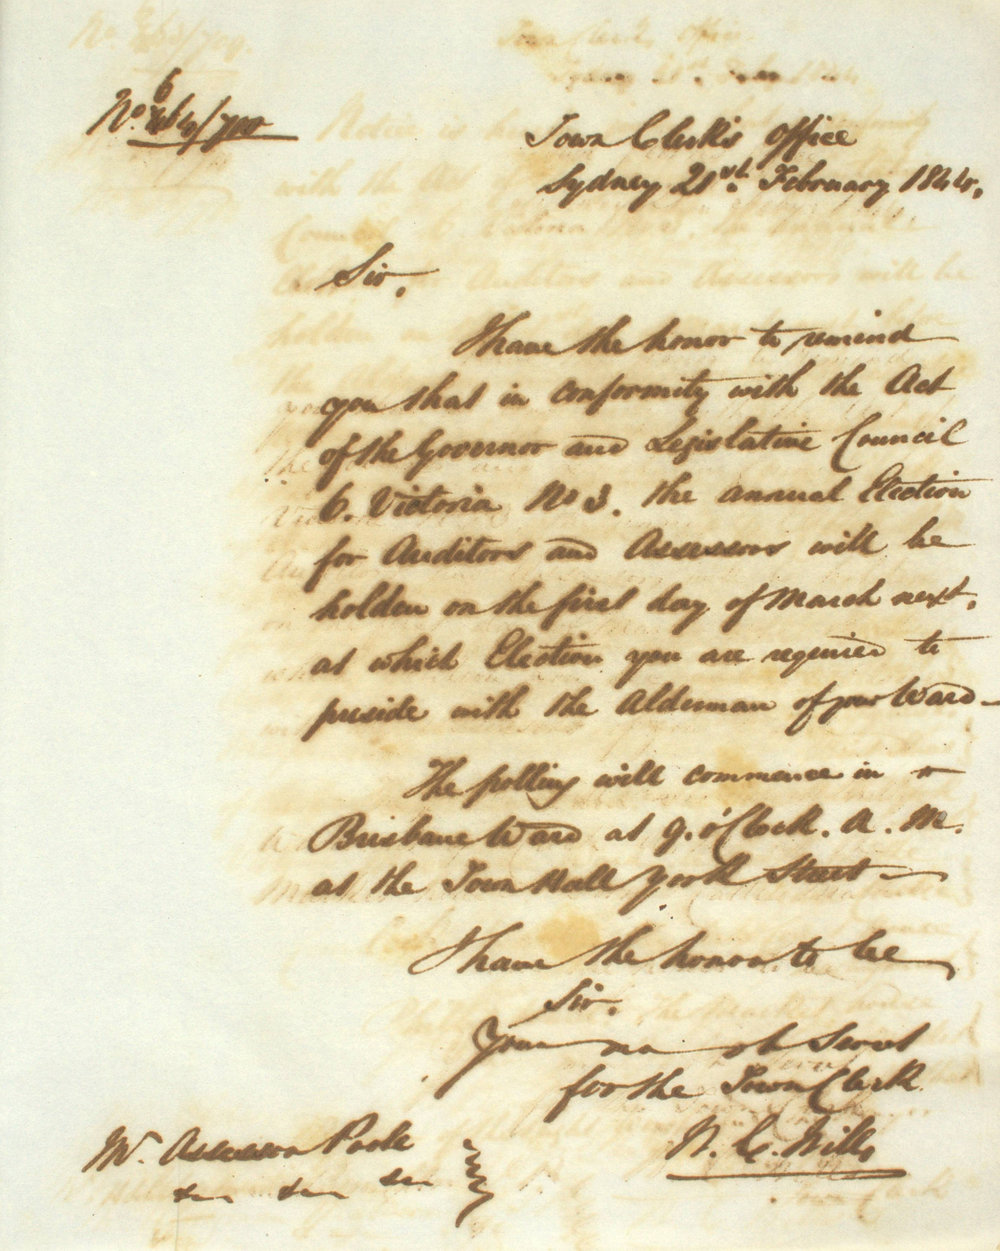 Town Clerk's Office
Sydney 21st. February 1844.
Sir.
I have the honor to remind
you that in conformity with the Act
of the Governor and Legislative Council
6. Victoria No 3. the annual Election
for Auditors and Assessors will be
holden on the first day of March next.
at which Election you are required to
preside with the Alderman of your Ward
The polling will commence in
Brisbane Ward at 9. o'Clock. A. M.
at the Town Hall York Street
I have the honor to be
Sir.
Your ob Servt
for the Town Clerk
Mr. Assessor